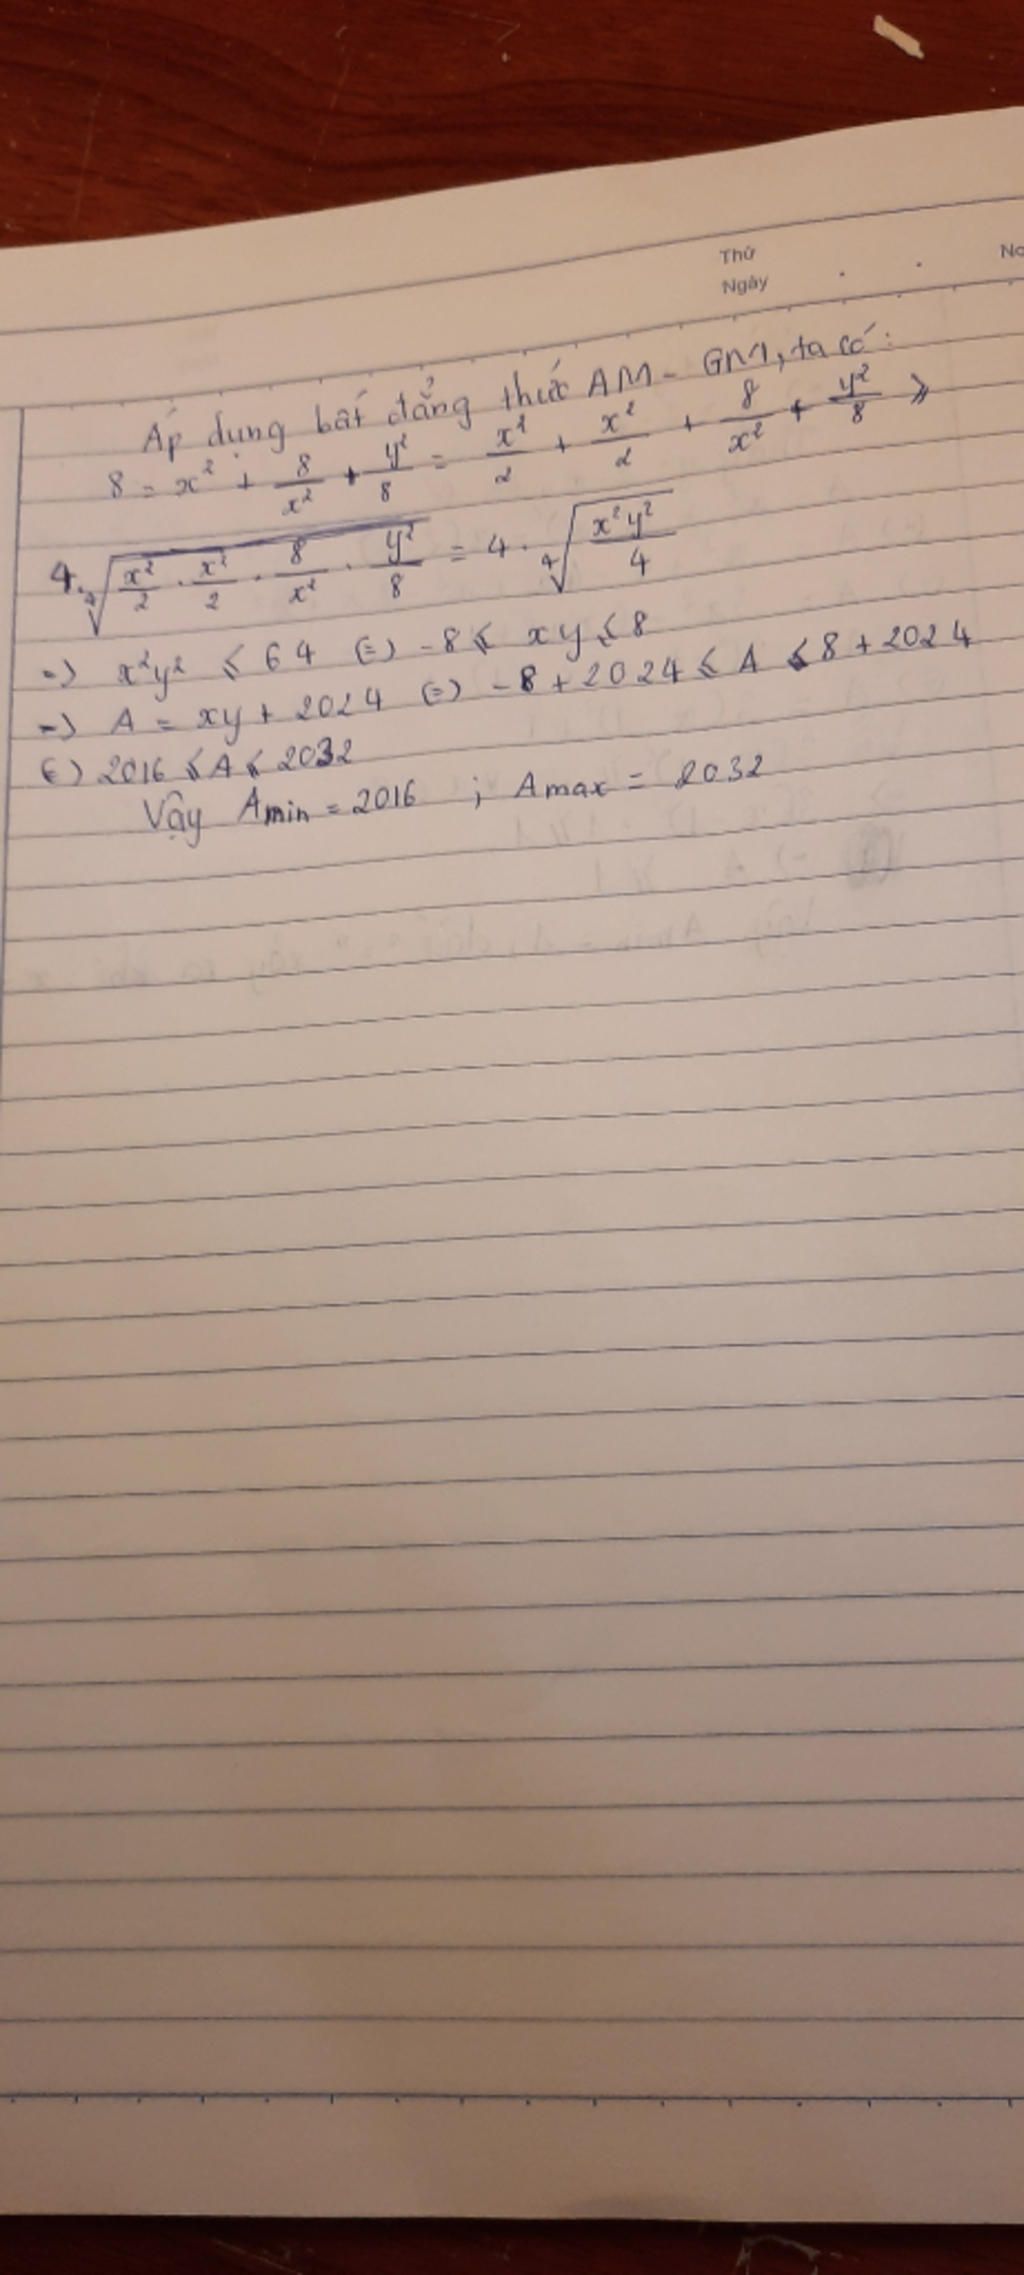 Thứ
Ngày
No
Áp dụng bất đẳng thức AM - GM, ta có:
8 = x² + 8/x² + y²/8 = x²/2 + x²/2 + 8/x² + y²/8 ⩾
4.∜(x²/2 . x²/2 . 8/x² . y²/8) = 4. ∜(x²y²/4)
=) x²y² ⩽ 64 (=) -8 ⩽ xy ⩽ 8
=) A = xy + 2024 (=) -8 + 2024 ⩽ A ⩽ 8 + 2024
(=) 2016 ⩽ A ⩽ 2032
Vậy Amin = 2016 ; Amax = 2032